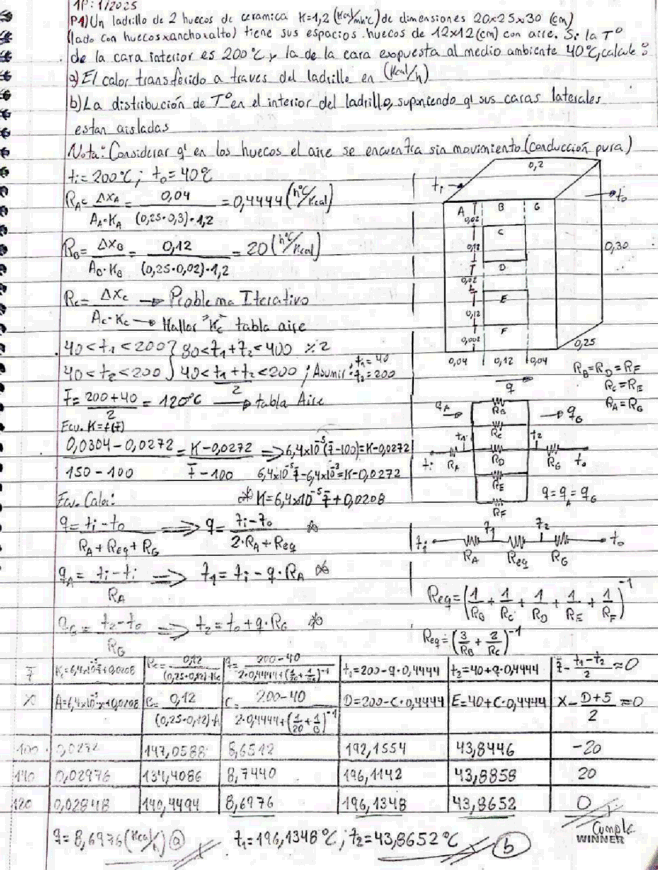 1P: 1/2025
P1) Un ladrillo de 2 huecos de ceramica K=1,2 (Kcal/mh°C) de dimensiones 20x25x30 (cm)
(lado con huecosxanchoxalto) tiene sus espacios huecos de 12x12 (cm) con aire. Si la T°
de la cara interior es 200°C y la de la cara expuesta al medio ambiente 40°C, calcule:
a) El calor transferido a traves del ladrillo en (Kcal/h)
b) La distribución de T° en el interior del ladrillo, suponiendo q' sus caras laterales
estan aisladas
Nota: Considerar q' en los huecos el aire se encuentra sin movimiento (conducción pura)
ti = 200°C ; to = 40°C
RA = ΔXA / AA·KA = 0,04 / (0,25·0,3)·1,2 = 0,4444 (h°C/Kcal)
RB = ΔXB / AB·KB = 0,12 / (0,25·0,02)·1,2 = 20 (h°C/Kcal)
RC = ΔXC / AC·KC → Problema Iterativo
→ Hallar "KC" tabla aire
40 < t1 < 200 } 80 < t1 + t2 < 400 %2
40 < t2 < 200 } 40 < t1 + t2 / 2 < 200 ; Asumir: t1 = 40
t2 = 200
t̄ = 200+40 / 2 = 120°C → tabla Aire
Ecu. K = f(t̄)
0,0304 - 0,0272 / 150 - 100 = K - 0,0272 / t̄ - 100 ⇒ 6,4x10⁻⁵(t̄-100) = K-0,0272
6,4x10⁻⁵t̄ - 6,4x10⁻³ = K-0,0272
* K = 6,4x10⁻⁵ t̄ + 0,0208
Ecu. Calor:
q = ti - to / RA + Req + RG ⇒ q = ti - to / 2·RA + Req *
qA = ti - t1 / RA ⇒ t1 = ti - q·RA *
qG = t2 - to / RG ⇒ t2 = to + q·RG *
0,2
t1
to
A B G
0,02
C
0,12
D
0,02
E
0,12
F
0,002
0,30
0,25
0,04 0,12 0,04
q
RB = RD = RF
RC = RE
RA = RG
qA
RB
qG
RC
t1 t2
ti RA RD RG to
RE
RF
q = qA = qG
ti t1 t2 to
RA Req RG
Req = (1/RB + 1/RC + 1/RD + 1/RE + 1/RF)⁻¹
Req = (3/RB + 2/RC)⁻¹
t̄ t1=200-q·0,4444 t2=40+q·0,4444
X D=200-C·0,4444 E=40+C·0,4444
100 0,0272 147,0588 8,6512 43,8446 -20
140 0,02976 134,4086 8,7440 196,1142 43,8858 20
120 0,02848 140,4494 8,6976 196,1348 43,8652 0
Cumple
WINNER
q = 8,6976 (Kcal/h) a t1 = 196,1348°C ; t2 = 43,8652°C b